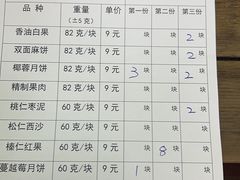 品 种 重量 (±5克) 单价 第一份 第二份 第三份
香油白果 82 克/块 9 元 块 块 2 块
双面麻饼 82 克/块 9 元 块 块 2 块
椰蓉月饼 82 克/块 9 元 3 块 块 2 块
精制果肉 82 克/块 9 元 块 块 块
桃仁枣泥 60 克/块 9 元 块 块 2 块
松仁西沙 60 克/块 9 元 块 块 块
榛仁红果 60 克/块 9 元 块 8 块 块
蔓越莓月饼 60 克/块 9 元 1 块 块 块